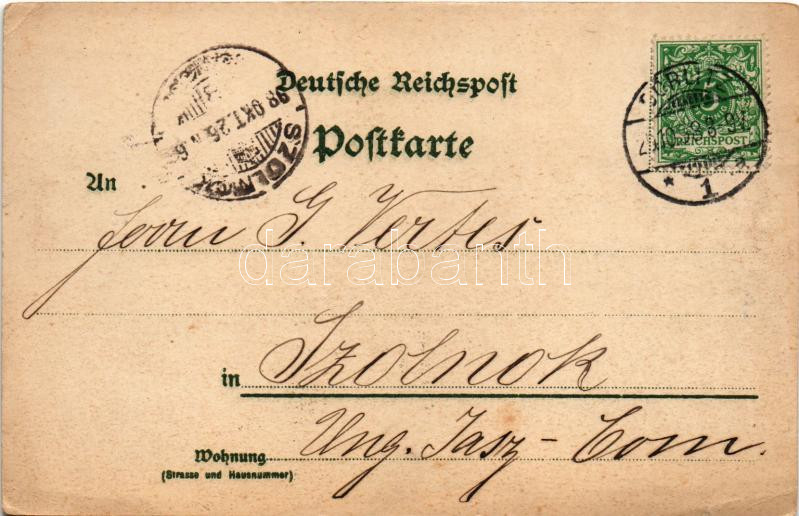 Deutsche Reichspost
Postkarte
An
Herrn G. Vertes
in Szolnok
Ung. Jasz-Com.
Wohnung
(Strasse und Hausnummer)
SZOLNOK
98 OKT. 26
5
REICHSPOST
1
darabanth